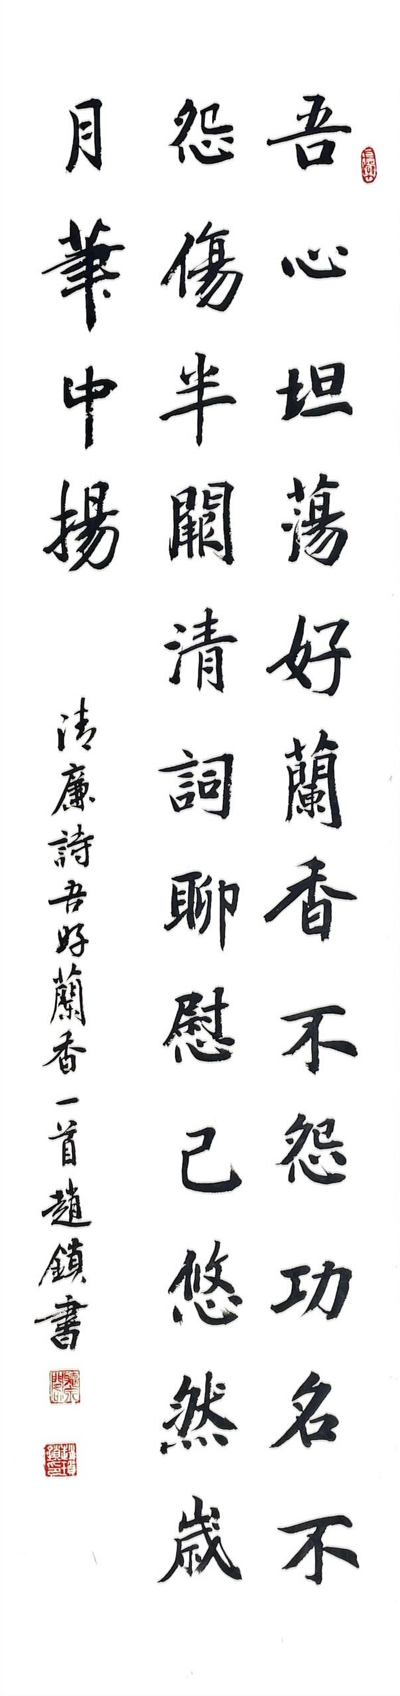 吾心坦蕩好蘭香不怨功名不
怨傷半闕清詞聊慰己悠然歲
月筆中揚
清廉詩吾好蘭香一首趙鎖書